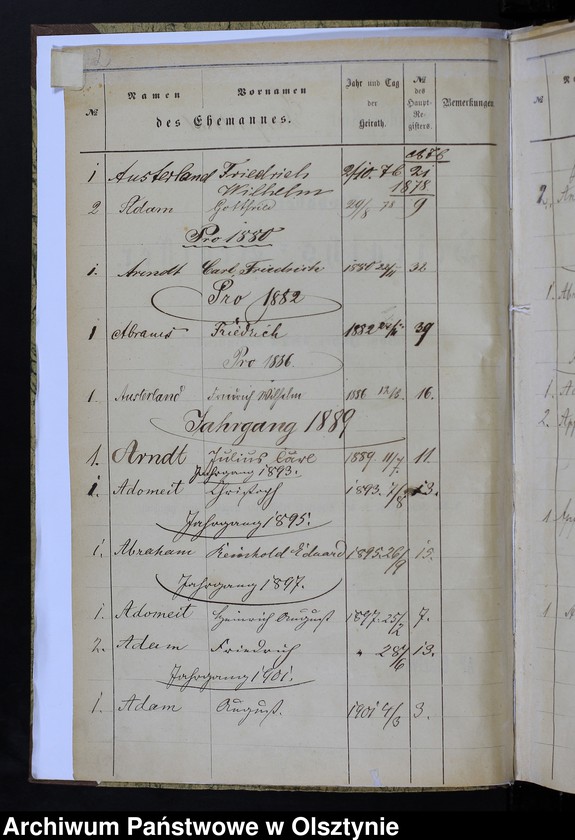 № Namen Vornamen Jahr und Tag № Bemerkungen
des Ehemannes. der des
Heirath. Haupt-
Re-
gisters.
1876
1 Austerland Friedrich 2/10. 76 21
Wilhelm 1878
2 Adam Gottfried 29/8 78 9
Pro 1880
1. Arendt Carl Friedrich 1880 32
Pro 1882
1 Abrams Friedrich 1882 39
Pro 1886
1. Austerland Friedrich Wilhelm 1886 16.
Jahrgang 1889
1. Arndt Julius Carl 1889 11/7 11.
Jahrgang 1893.
1. Adomeit Christoph 1893. 13.
Jahrgang 1895.
1. Abraham Reinhold Eduard 1895. 26/9 12.
Jahrgang 1897.
1. Adomeit Heinrich August 1897. 25/2 7.
2. Adam Friedrich " 28/6 13.
Jahrgang 1901.
1. Adam August. 1901 4/3 3.
Archiwum Państwowe w Olsztynie